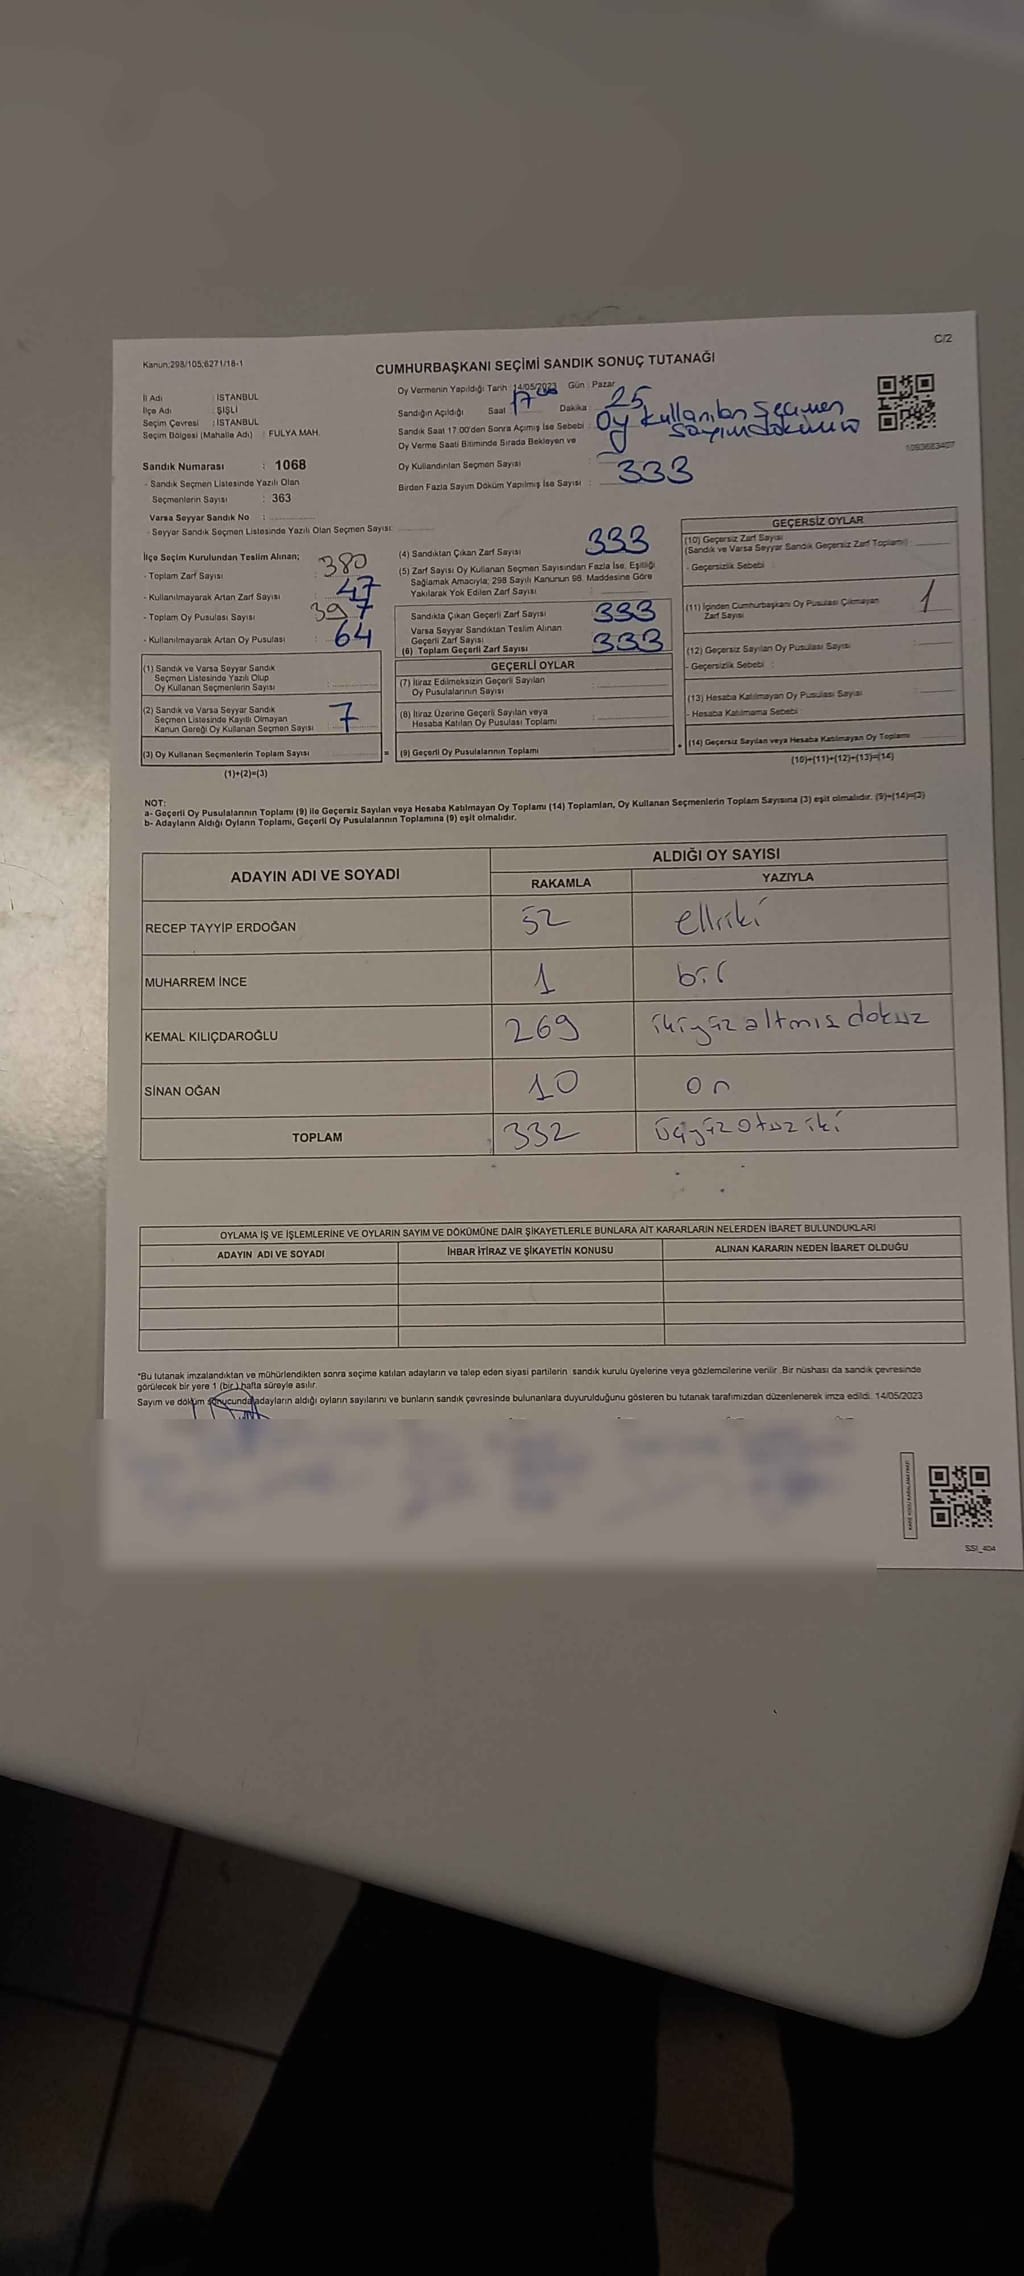 C/2
Kanun:298/105;6271/18-1
CUMHURBAŞKANI SEÇİMİ SANDIK SONUÇ TUTANAĞI
İl Adı : İSTANBUL
İlçe Adı : ŞİŞLİ
Seçim Çevresi : İSTANBUL
Seçim Bölgesi (Mahalle Adı) : FULYA MAH.
Sandık Numarası : 1068
- Sandık Seçmen Listesinde Yazılı Olan
Seçmenlerin Sayısı : 363
Varsa Seyyar Sandık No :
- Seyyar Sandık Seçmen Listesinde Yazılı Olan Seçmen Sayısı:
Oy Vermenin Yapıldığı Tarih :14/05/2023 Gün : Pazar
Sandığın Açıldığı Saat : 17 Dakika : 25
Sandık Saat 17.00'den Sonra Açımış İse Sebebi : Oy kullanılan seçmen
Oy Verme Saati Bitiminde Sırada Bekleyen ve
Oy Kullandırılan Seçmen Sayısı :
Birden Fazla Sayım Döküm Yapılmış İse Sayısı : 333
1093683407
İlçe Seçim Kurulundan Teslim Alınan;
- Toplam Zarf Sayısı : 380
- Kullanılmayarak Artan Zarf Sayısı : 47
- Toplam Oy Pusulası Sayısı : 397
- Kullanılmayarak Artan Oy Pusulası : 64
(1) Sandık ve Varsa Seyyar Sandık
Seçmen Listesinde Yazılı Olup
Oy Kullanan Seçmenlerin Sayısı
(2) Sandık ve Varsa Seyyar Sandık
Seçmen Listesinde Kayıtlı Olmayan
Kanun Gereği Oy Kullanan Seçmen Sayısı : 7
(3) Oy Kullanan Seçmenlerin Toplam Sayısı =
(1)+(2)=(3)
(4) Sandıktan Çıkan Zarf Sayısı : 333
(5) Zarf Sayısı Oy Kullanan Seçmen Sayısından Fazla İse, Eşitliği
Sağlamak Amacıyla; 298 Sayılı Kanunun 98. Maddesine Göre
Yakılarak Yok Edilen Zarf Sayısı :
Sandıkta Çıkan Geçerli Zarf Sayısı : 333
Varsa Seyyar Sandıktan Teslim Alınan
Geçerli Zarf Sayısı
(6) Toplam Geçerli Zarf Sayısı : 333
GEÇERLİ OYLAR
(7) İtiraz Edilmeksizin Geçerli Sayılan
Oy Pusulalarının Sayısı :
(8) İtiraz Üzerine Geçerli Sayılan veya
Hesaba Katılan Oy Pusulası Toplamı :
(9) Geçerli Oy Pusulalarının Toplamı : +
GEÇERSİZ OYLAR
(10) Geçersiz Zarf Sayısı
(Sandık ve Varsa Seyyar Sandık Geçersiz Zarf Toplamı) :
- Geçersizlik Sebebi :
(11) İçinden Cumhurbaşkanı Oy Pusulası Çıkmayan
Zarf Sayısı 1
(12) Geçersiz Sayılan Oy Pusulası Sayısı :
- Geçersizlik Sebebi :
(13) Hesaba Katılmayan Oy Pusulası Sayısı :
- Hesaba Katılmama Sebebi :
(14) Geçersiz Sayılan veya Hesaba Katılmayan Oy Toplamı
(10)+(11)+(12)+(13)=(14)
NOT:
a- Geçerli Oy Pusulalarının Toplamı (9) ile Geçersiz Sayılan veya Hesaba Katılmayan Oy Toplamı (14) Toplamları, Oy Kullanan Seçmenlerin Toplam Sayısına (3) eşit olmalıdır. (9)+(14)=(3)
b- Adayların Aldığı Oyların Toplamı, Geçerli Oy Pusulalarının Toplamına (9) eşit olmalıdır.
ADAYIN ADI VE SOYADI ALDIĞI OY SAYISI
RAKAMLA YAZIYLA
RECEP TAYYİP ERDOĞAN 52 elliiki
MUHARREM İNCE 1 bir
KEMAL KILIÇDAROĞLU 269 ikiyüz altmış dokuz
SİNAN OĞAN 10 on
TOPLAM 332 üçyüz otuz iki
OYLAMA İŞ VE İŞLEMLERİNE VE OYLARIN SAYIM VE DÖKÜMÜNE DAİR ŞİKAYETLERLE BUNLARA AİT KARARLARIN NELERDEN İBARET BULUNDUKLARI
ADAYIN ADI VE SOYADI İHBAR İTİRAZ VE ŞİKAYETİN KONUSU ALINAN KARARIN NEDEN İBARET OLDUĞU
*Bu tutanak imzalandıktan ve mühürlendikten sonra seçime katılan adayların ve talep eden siyasi partilerin sandık kurulu üyelerine veya gözlemcilerine verilir. Bir nüshası da sandık çevresinde
görülecek bir yere 1 (bir) hafta süreyle asılır.
Sayım ve döküm sonucunda adayların aldığı oyların sayılarını ve bunların sandık çevresinde bulunanlara duyurulduğunu gösteren bu tutanak tarafımızdan düzenlenerek imza edildi. 14/05/2023
SSI_404